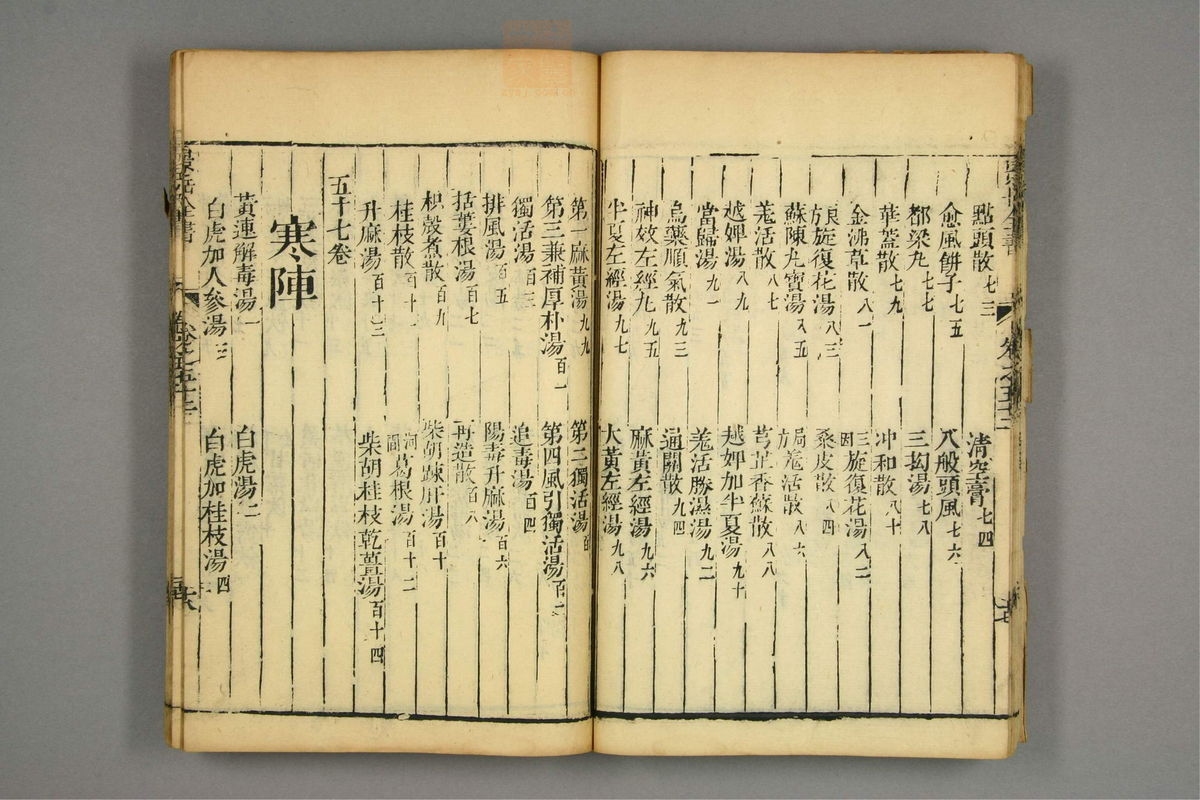 點頭散七三 清空膏七四
愈風餅子七五 八般頭風七六
都梁丸七七 三拗湯七八
華蓋散七九 冲和散八十
金沸草散八一 三因旋復花湯八二
旋復花湯八三 桑皮散八四
蘇陳九寶湯八五 局方羗活散八六
羗活散八七 芎芷香蘇散八八
越婢湯八九 越婢加半夏湯九十
當歸湯九一 羗活勝濕湯九二
烏藥順氣散九三 通關散九四
神效左經丸九五 麻黃左經湯九六
半夏左經湯九七 大黃左經湯九八
第一麻黃湯九九 第二獨活湯百
第三兼補厚朴湯百一 第四風引獨活湯百二
獨活湯百三 追毒湯百四
排風湯百五 陽毒升麻湯百六
括蔞根湯百七 再造散百八
枳殼煮散百九 柴胡踈肝湯百十
桂枝散百十一 河間葛根湯百十二
升麻湯百十三 柴胡桂枝乾薑湯百十四
五十七卷
寒陣
黃連解毒湯一 白虎湯二
白虎加人參湯三 白虎加桂枝湯四